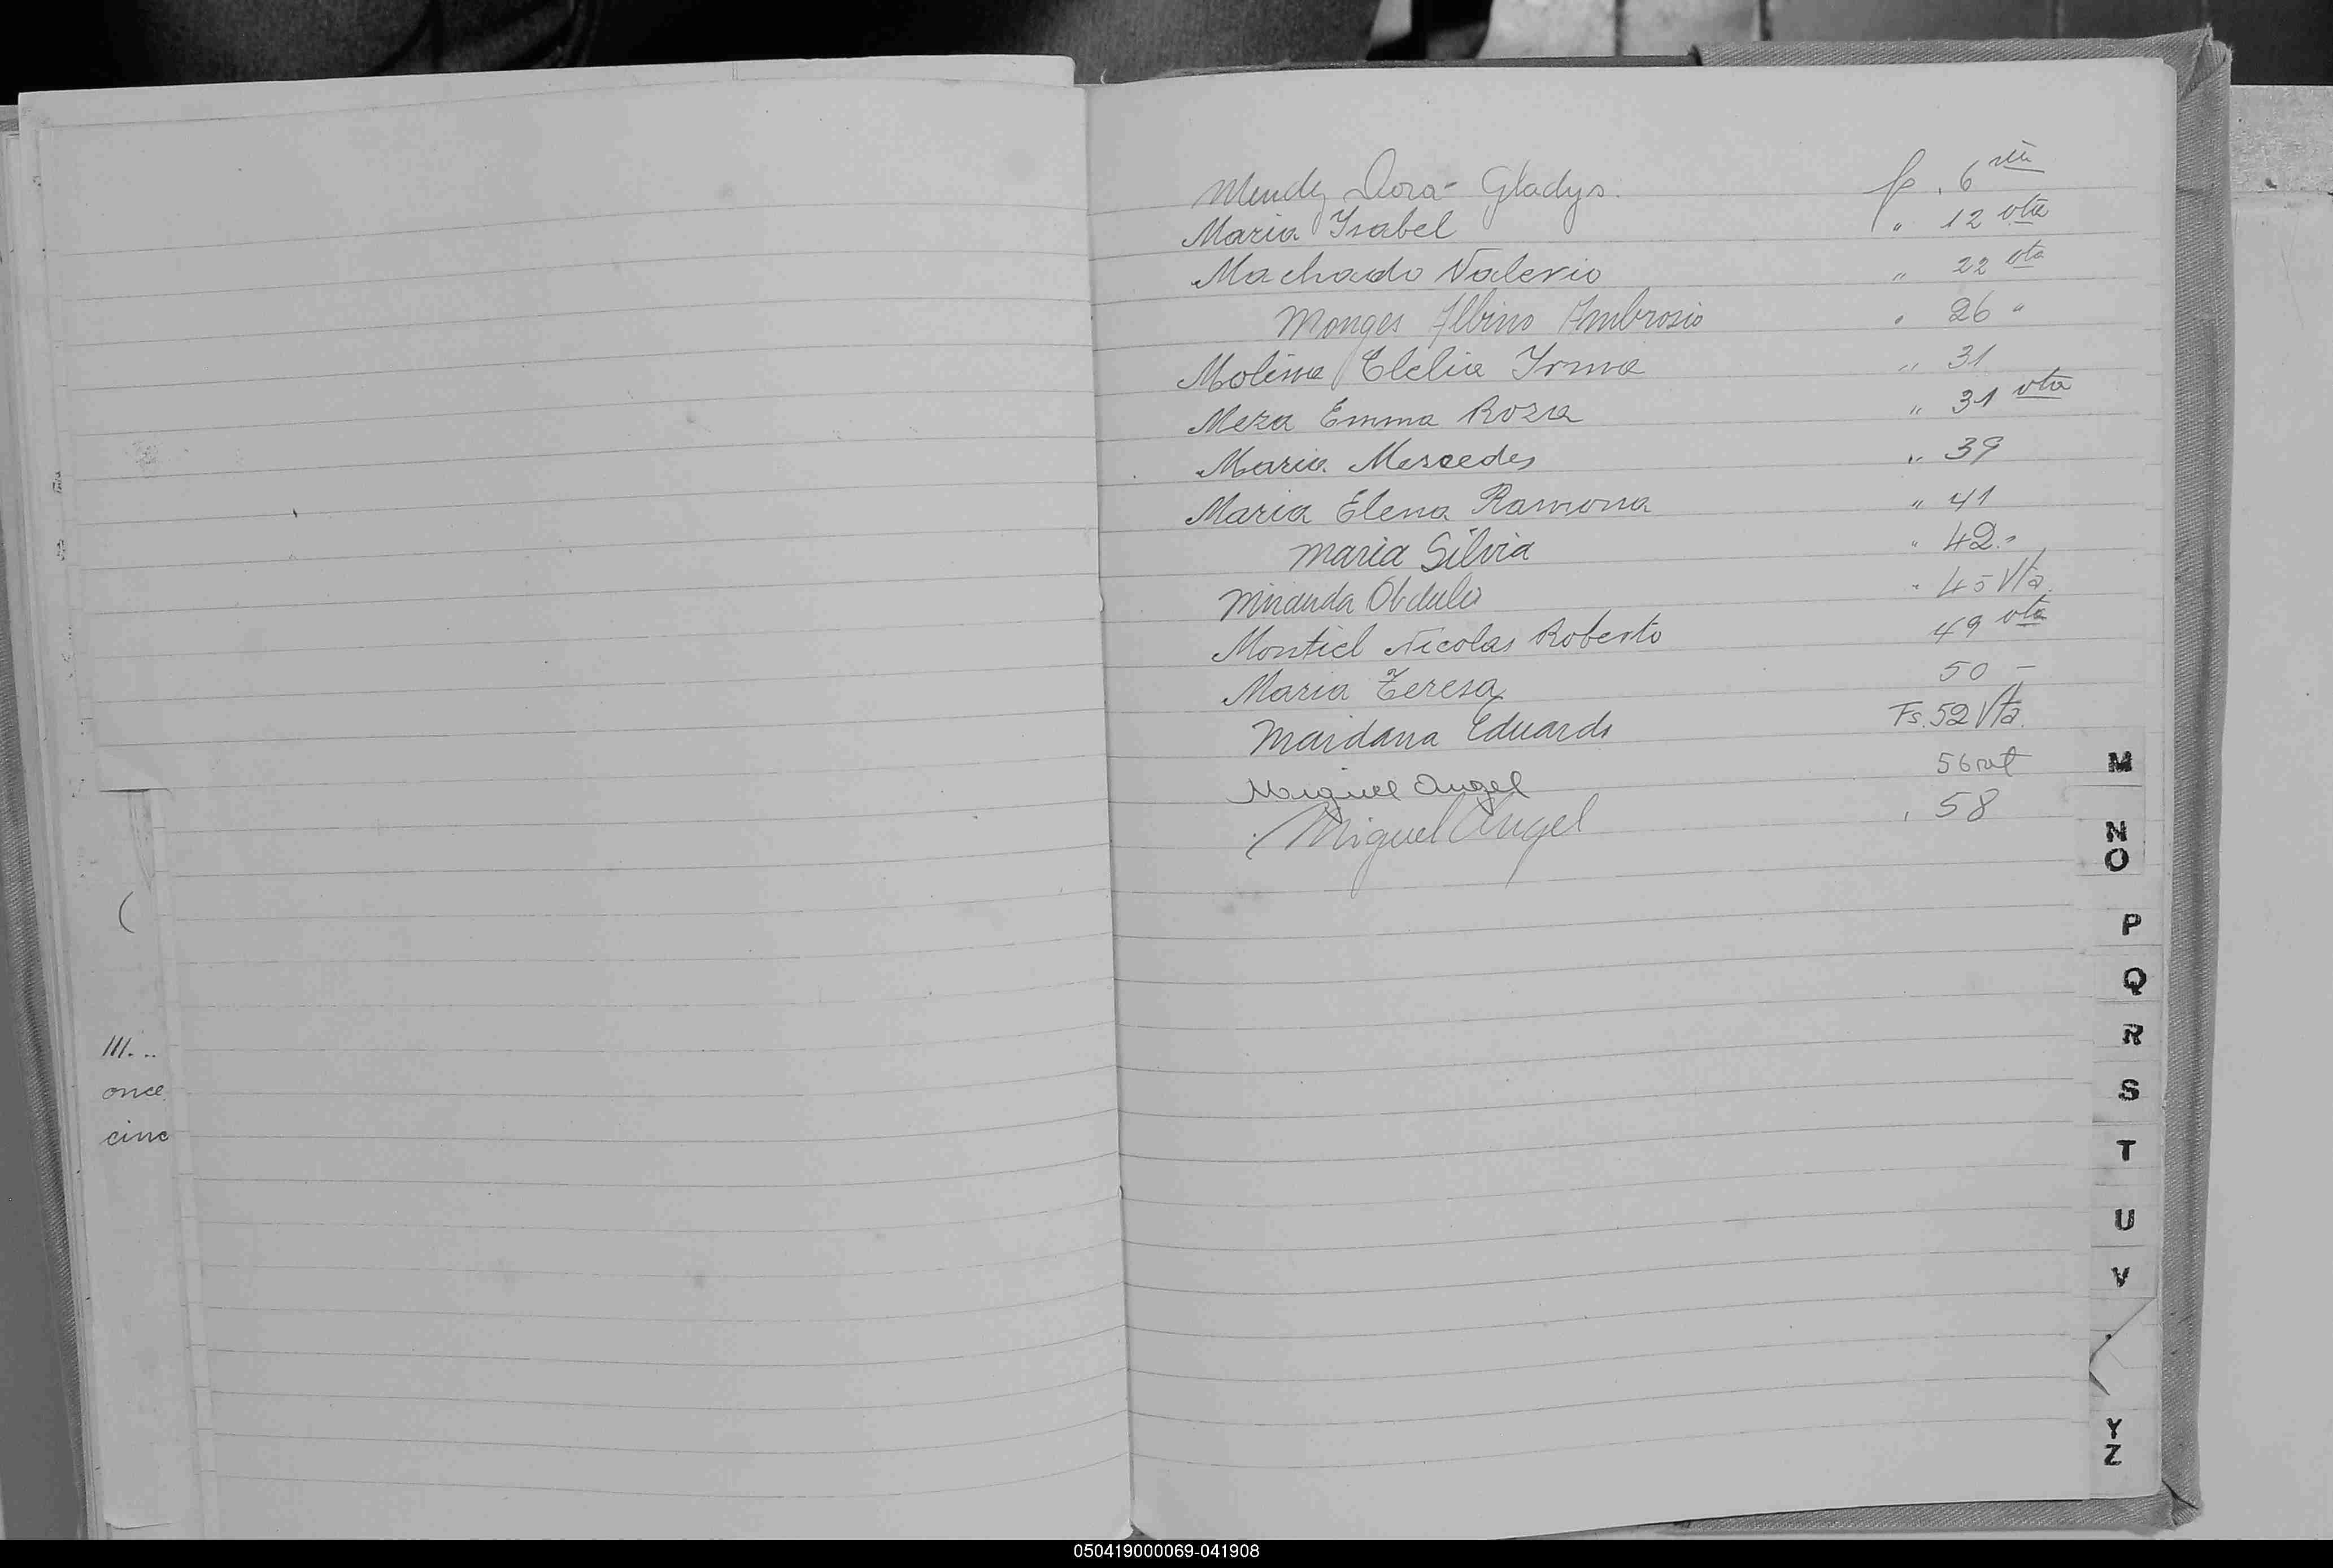 Mendez Dora Gladys. fs. 6 vta
Maria Isabel " 12 vta
Machado Valerio " 22 vta
Monges Albino Ambrosio " 26 "
Molina Clelia Irma " 31
Meza Emma Rosa " 31 vta
Maria Mercedes " 39
Maria Elena Ramona " 41
Maria Silvia " 42.-
Miranda Obdulo " 45 Vta.
Montiel Nicolas Roberto 49 vta
Maria Teresa 50 -
Maidana Eduardo Fs. 52 Vta.
Miguel Angel 56 vt
Miguel Angel 58
M
N
O
P
Q
R
S
T
U
V
Y
Z
(
///...
once
cinc
050419000069-041908